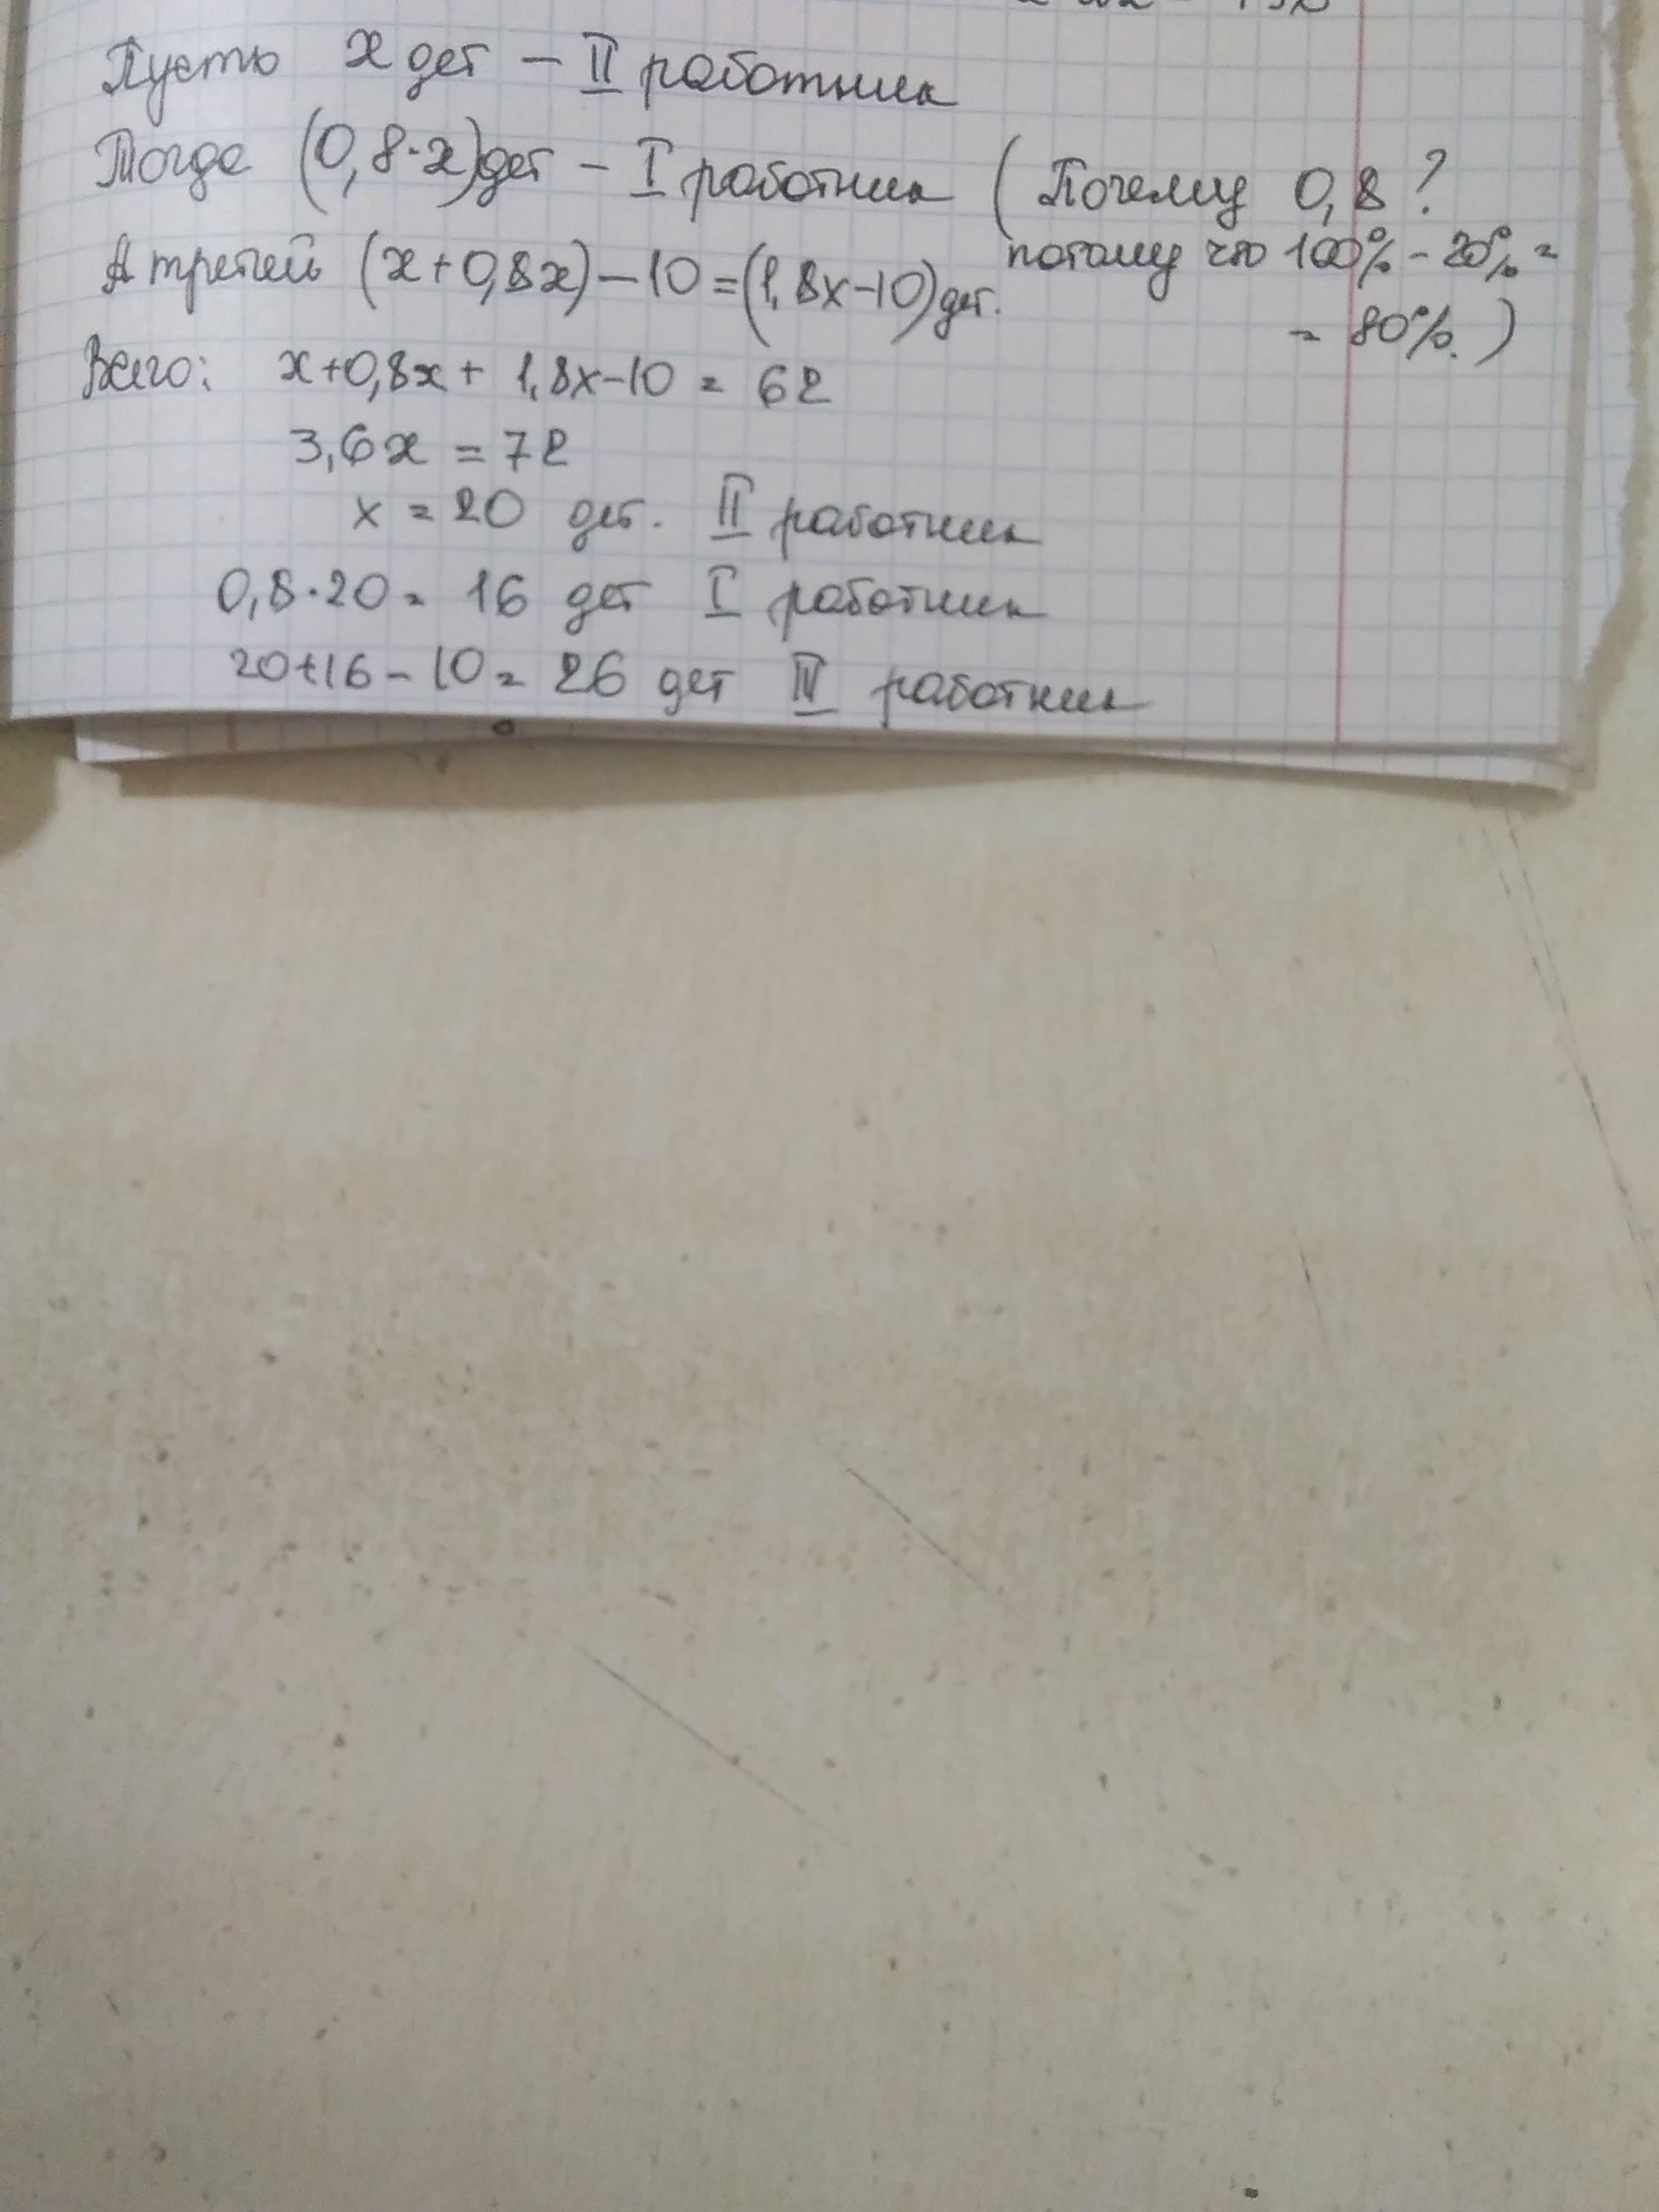 Пусть x дет – II работник
Тогда (0,8·x) дет – I работник (Почему 0,8?
потому что 100% - 20% =
= 80%.)
А третий (x+0,8x) – 10 = (1,8x-10) дет.
Всего: x+0,8x + 1,8x-10 = 62
3,6x = 72
x = 20 дет. II работник
0,8·20 = 16 дет I работник
20+16 - 10 = 26 дет III работник